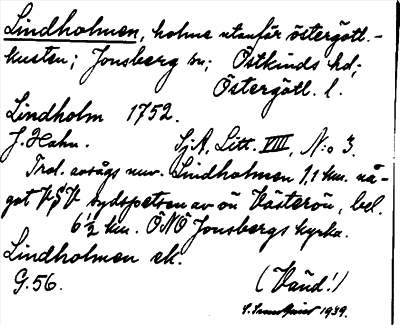 Lindholmen, holme utanför östergötl.-
kusten; Jonsberg sn; Östkinds hd;
Östergötl. l.
Lindholm 1752.
J. Hahn. SjA, Litt. VIII, N:o 3.
Trol. avsågs nuv. Lindholmen 1,1 km. nå-
got VSV sydspetsen av ön Västerön, bel.
6½ km. ÖNÖ Jonsbergs kyrka.
Lindholmen ek.
G. 56. (Vänd!)
1939.